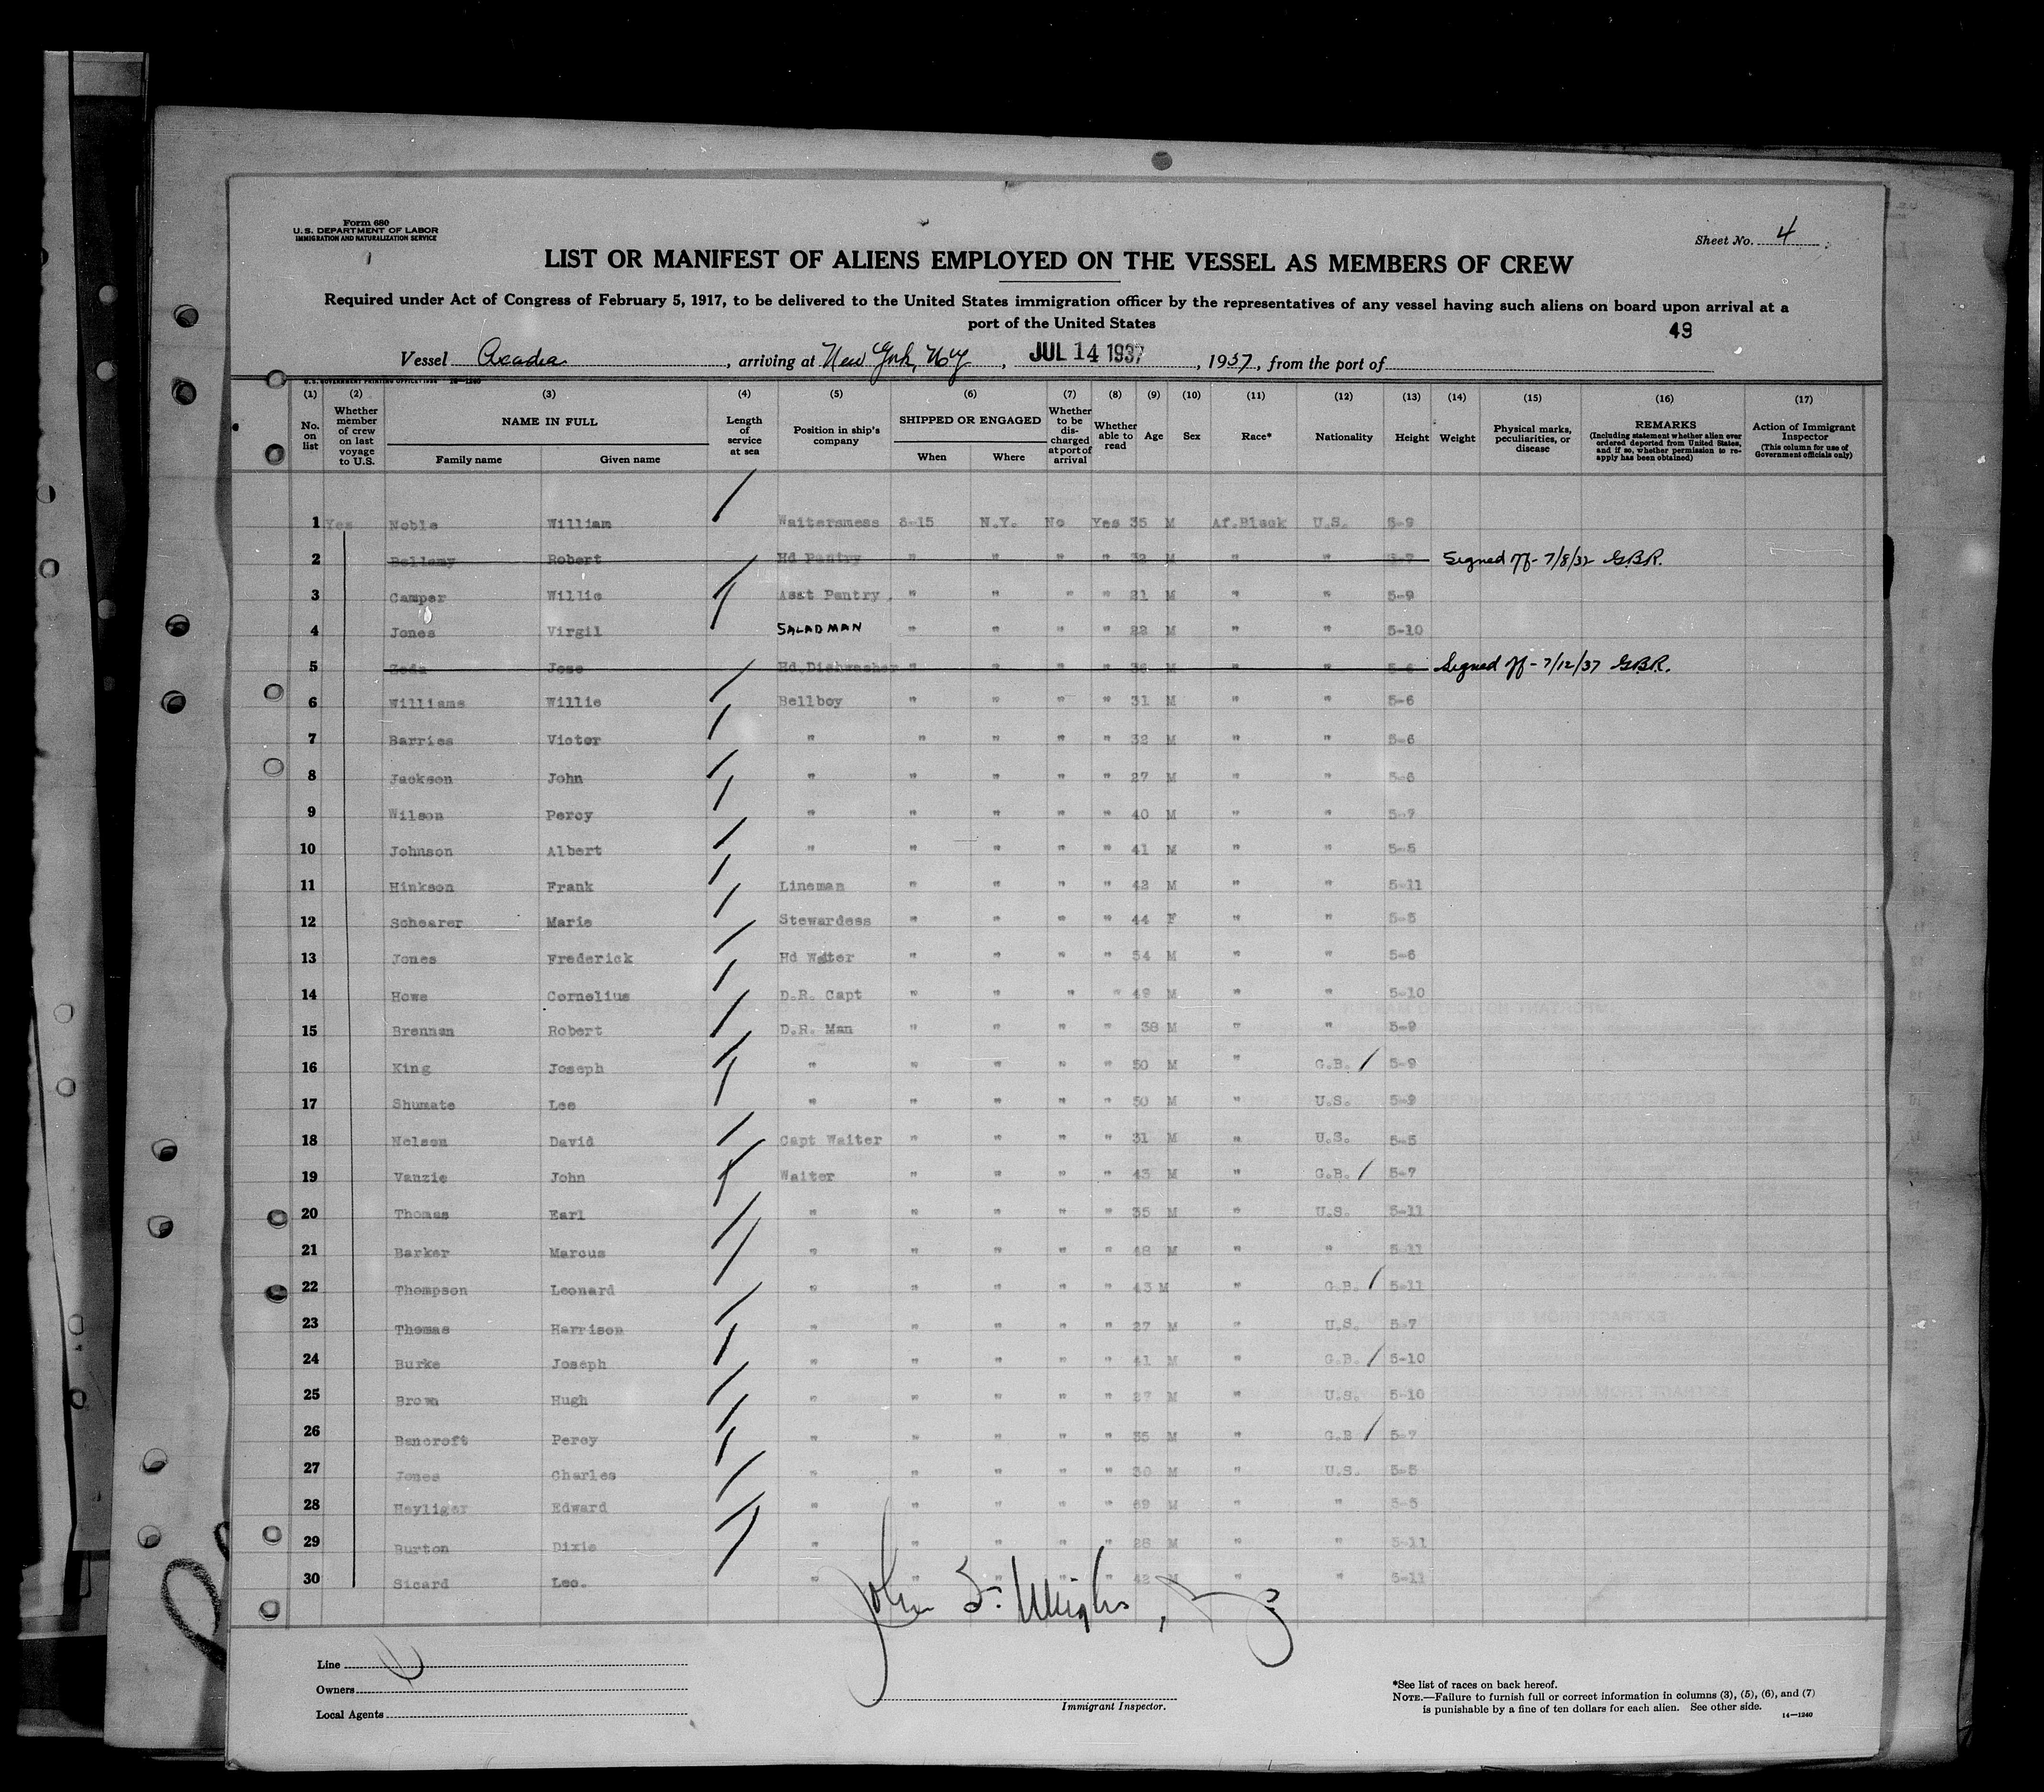 Form 680
U. S. DEPARTMENT OF LABOR
IMMIGRATION AND NATURALIZATION SERVICE
Sheet No. 4
LIST OR MANIFEST OF ALIENS EMPLOYED ON THE VESSEL AS MEMBERS OF CREW
Required under Act of Congress of February 5, 1917, to be delivered to the United States immigration officer by the representatives of any vessel having such aliens on board upon arrival at a
port of the United States
49
Vessel Acadia, arriving at New York, NY, JUL 14 1937, 1937, from the port of
U. S. GOVERNMENT PRINTING OFFICE 14—1240
(1) (2) (3) (4) (5) (6) (7) (8) (9) (10) (11) (12) (13) (14) (15) (16) (17)
No. on list Whether member of crew on last voyage to U.S. NAME IN FULL Family name Given name Length of service at sea Position in ship's company SHIPPED OR ENGAGED When Where Whether to be discharged at port of arrival Whether able to read Age Sex Race* Nationality Height Weight Physical marks, peculiarities, or disease REMARKS (Including statement whether alien ever ordered deported from United States, and if so, whether permission to reapply has been obtained) Action of Immigrant Inspector (This column for use of Government officials only)
1 Yes Noble William Waitersmess 6-15 N.Y. No Yes 35 M Af.Black U.S. 5-9
2 Bellamy Robert Hd Pantry " " " " 32 M " " 5-7 Signed off - 7/8/37 G.B.R.
3 Camper Willie Asst Pantry " " " " 21 M " " 5-9
4 Jones Virgil SALADMAN " " " " 22 M " " 5-10
5 Jose Hd.Dishwasher " " " " 36 M " " 5-6 Signed off - 7/12/37 G.B.R.
6 Williams Willie Bellboy " " " " 31 M " " 5-6
7 Barries Victor " " " " " 32 M " " 5-6
8 Jackson John " " " " " 27 M " " 5-6
9 Wilson Percy " " " " " 40 M " " 5-7
10 Johnson Albert " " " " " 41 M " " 5-5
11 Hinkson Frank Lineman " " " " 42 M " " 5-11
12 Schearer Marie Stewardess " " " " 44 F " " 5-5
13 Jones Frederick Hd Waiter " " " " 54 M " " 5-6
14 Howe Cornelius D.R. Capt " " " " 49 M " " 5-10
15 Brennan Robert D.R. Man " " " " 38 M " " 5-9
16 King Joseph " " " " " 50 M " G.B. / 5-9
17 Shumate Lee " " " " " 50 M " U.S. 5-9
18 Nelson David Capt Waiter " " " " 31 M " U.S. 5-5
19 Vanzie John Waiter " " " " 43 M " G.B. / 5-7
20 Thomas Earl " " " " " 35 M " U.S. 5-11
21 Barker Marcus " " " " " 48 M " " 5-11
22 Thompson Leonard " " " " " 43 M " G.B. / 5-11
23 Thomas Harrison " " " " " 27 M " U.S. 5-7
24 Burke Joseph " " " " " 41 M " G.B. / 5-10
25 Brown Hugh " " " " " 27 M " U.S. 5-10
26 Bancroft Percy " " " " " 35 M " G.B / 5-7
27 Jones Charles " " " " " 30 M " U.S. 5-5
28 Heyliger Edward " " " " " 69 M " " 5-5
29 Burton Dixie " " " " " 28 M " " 5-11
30 Sicard Leo. " " " " " 42 M " " 5-11
Line
Owners
Local Agents
John
Immigrant Inspector.
*See list of races on back hereof.
NOTE.—Failure to furnish full or correct information in columns (3), (5), (6), and (7)
is punishable by a fine of ten dollars for each alien. See other side.
14—1240